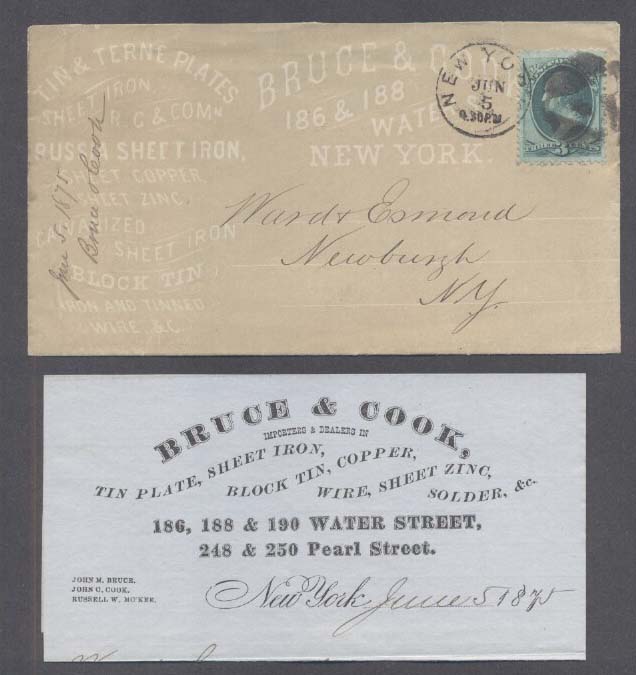 TIN & TERNE PLATES
SHEET IRON,
R. G & COMN
RUSSIA SHEET IRON,
SHEET COPPER,
SHEET ZINC,
GALVANIZED
SHEET IRON
BLOCK TIN,
IRON AND TINNED
WIRE, &C.
June 5, 1875
Bruce & Cook
BRUCE & COOK
186 & 188
WATER ST.
NEW YORK.
NEW YORK
JUN
5
9.30PM
Ward & Esmond
Newburgh
N.Y.
BRUCE & COOK,
IMPORTERS & DEALERS IN
TIN PLATE, SHEET IRON,
BLOCK TIN, COPPER,
WIRE, SHEET ZINC,
SOLDER, &c.
186, 188 & 190 WATER STREET,
248 & 250 Pearl Street.
JOHN M. BRUCE.
JOHN C. COOK.
RUSSELL W. McKEE.
New York June 5 1875